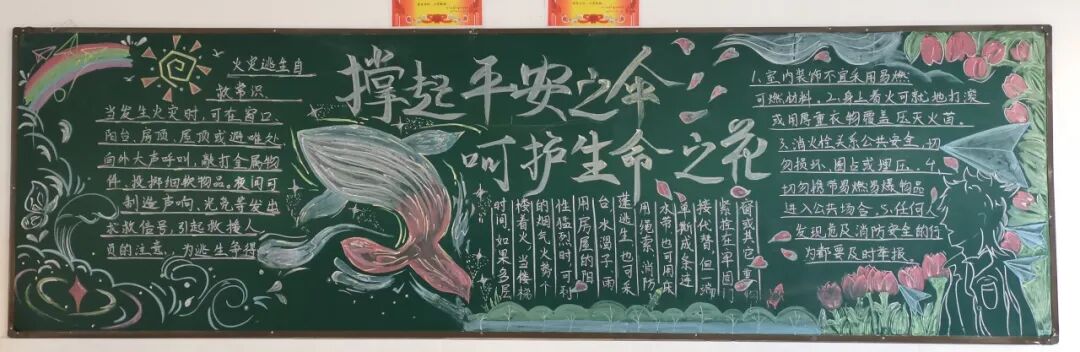 撑起平安之伞
呵护生命之花
火灾逃生自
救常识
当发生火灾时,可在窗口.
阳台、房顶、屋顶或避难处
向外大声呼叫,敲打金属物
件、投掷细软物品,夜间可
制造声响、光亮等发出
求救信号,引起救援人
员的注意,为逃生争得
时间.如果多层
楼着火,当楼梯
的烟气火势
性猛烈时可利
用房屋的阳
台水漏子雨
蓬逃生也可采
用绳索,消防
水带也可用床
单撕成条连
接代替但一端
紧拴在牢固门
窗或其它重
1.室内装饰不宜采用易燃
可燃材料.2.身上着火可就地打滚
或用厚重衣物覆盖压灭火苗.
3.消火栓关系公共安全,切
勿损坏、圈占或埋压.4
切勿携带易燃易爆物品
进入公共场合.5.任何人
发现危及消防安全的行
为都要及时举报